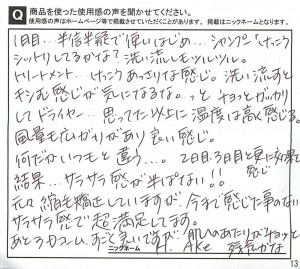 Q 商品を使った使用感の声を聞かせてください。
使用感の声はホームページ等で掲載させていただくことがあります。掲載はニックネームとなります。
1日目…半信半疑で使いはじめ…シャンプーけっこう
シットリしてるかな?洗い流しもツルツル。
トリートメント…けっこうあっさりな感じ。洗い流すと
キシむ感じが気になるな。っとチョッとガッカリ
してドライヤー…思ってた以上に温度は高く感じる。
風量も広がりがあり良い感じ。
何だかいつもと違う…。2日目、3日目と更に効果を感じ
結果…サラサラ感が半ぱない!!
元々縮毛矯正していますが、今まで感じた事のない
サラサラ感で超満足してます。
あと3カコム、すごく良いですが、肌へのあたりがチョッと
残念かな
ニックネーム H. Ake
13